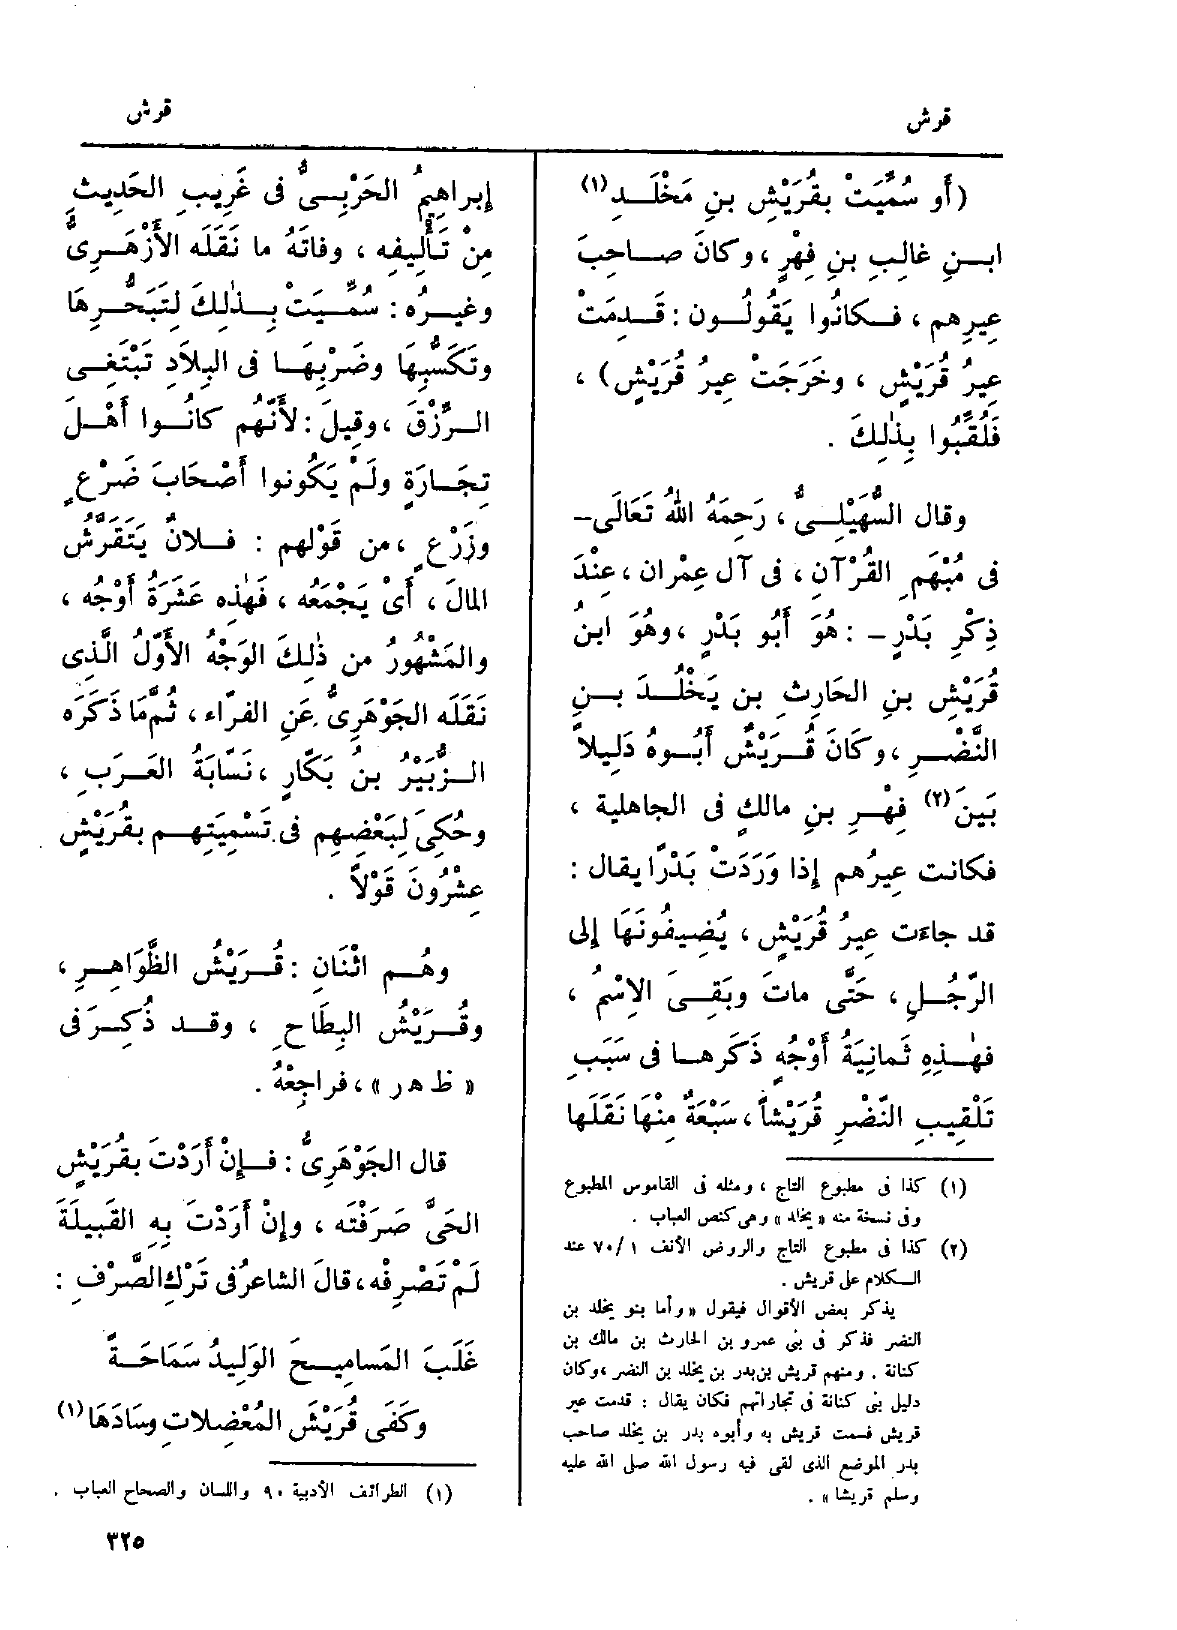 قرش
قرش
(أَو سُمِّيَتْ بقُرَيْشِ بنِ مَخْلَـدِ(١)
ابـنِ غالِبِ بنِ فِهْرٍ ، وكانَ صـاحِبَ
عِيرِهم ، فـكانُوا يَقُولُـون : قَـدِمَتْ
عِيرُ قُرَيْشٍ ، وخَرَجَتْ عِيرُ قُرَيْشٍ) ،
فَلُقِّبُوا بِذٰلِكَ .
وقال السُّهَيْلِـىُّ ، رَحِمَهُ اللهُ تَعَالَى–
فى مُبْهَمِ القُرْآنِ ، فى آل عِمْران ، عِنْدَ
ذِكْرِ بَدْرٍ – : هُوَ أَبُو بَدْرٍ ، وهُوَ ابنُ
قُرَيْشِ بنِ الحَارِثِ بن يَخْلُـدَ بـنِ
النَّضْـرِ ، وكَانَ قُـرَيْشٌ أَبُـوهُ دَلِيلاً
بَينَ(٢) فِهْـرِ بنِ مالكٍ فى الجاهلية ،
فكانت عِيرُهم إِذا وَرَدَتْ بَدْرًا يقال :
قد جاءَت عِيرُ قُرَيْشٍ ، يُضِيفُونَهَا إِلى
الرَّجُـلِ ، حَتَّى ماتَ وبَقِـىَ الاِسْمُ ،
فهٰـذِهِ ثَمانِيَةُ أَوْجُهٍ ذَكَرهـا فى سَبَبِ
تَلْقِيبِ النَّضْرِ قُرَيْشاً ، سَبْعَةٌ مِنْهَا نَقَلَها
(١) كذا فى مطبوع التاج ، ومثله فى القاموس المطبوع
وفى نسخة منه « يخلد » وهى كنص العباب .
(٢) كذا فى مطبوع التاج والروض الأنف ١/ ٧٠ عند
الـكلام على قريش .
يذكر بعض الأقوال فيقول « وأما بنو يخلد بن
النضر فذكر فى بنى عمرو بن الحارث بن مالك بن
كنانة . ومنهم قريش بن بدر بن يخلد بن النضر ، وكان
دليل بنى كنانة فى تجاراتهم فكان يقال : قدمت عير
قريش فسمت قريش به وأبوه بدر بن يخلد صاحب
بدر الموضع الذى لقى فيه رسول الله صلى الله عليه
وسلم قريشا » .
إبراهيمُ الحَرْبِـىُّ فى غَرِيبِ الحَدِيثِ
مِنْ تَأْلِيفِه ، وفاتَهُ ما نَقَلَه الأَزْهَـرِىُّ
وغيـرُه : سُمِّـيَتْ بِـذٰلِكَ لِتَبَحُّرِهَا
وتَكَسُّبِهَا وضَرْبِهَـا فى البِلاَدِ تَبْتَغِـى
الـرِّزْقَ ، وقِيلَ : لأَنَّهُم كانُـوا أَهْـلَ
تِجَـارَةٍ ولَمْ يَكُونوا أَصْحَابَ ضَرْعٍ
وزَرْعٍ ، من قَوْلهم : فـلانٌ يَتَقَرَّشُ
المالَ ، أَىْ يَجْمَعُه ، فَهٰذِه عَشَرَةُ أَوْجُه ،
والمَشْهُورُ من ذٰلِكَ الوَجْهُ الأَوَّلُ الَّذِى
نَقَلَه الجَوْهَرِىُّ عَنِ الفرّاء ، ثُمَّ مَا ذَكَرَه
الـزُّبَيْرُ بنُ بَكّارٍ ، نَسّابَةُ العَـرَبِ ،
وحُكِىَ لِبَعْضِهِم فى تَسْمِيَتِهـم بقُرَيْشٍ
عِشْرُونَ قَوْلاً .
وهُـم اثْنَانِ : قُـرَيْشُ الظَّوَاهِـرِ ،
وقُـرَيْشُ البِطَاحِ ، وقـد ذُكِـرَ فى
« ظ هـ ر » ، فراجِعْهُ .
قال الجَوْهَرِىُّ : فـإِنْ أَرَدْتَ بقُرَيْشٍ
الحَىَّ صَرَفْتَه ، وإِنْ أَرَدْتَ بِهِ القَبِيلَةَ
لَمْ تَصْرِفْه ، قالَ الشاعرُ فى تَرْكِ الصَّرْفِ :
غَلَبَ المَسامِيـحَ الوَلِيدُ سَمَاحَـةً
وكَفَى قُرَيْشَ المُعْضِلاتِ وسَادَهَا(١)
(١) الطرائف الأدبية ٩٠ واللسان والصحاح العباب .
٣٢٥